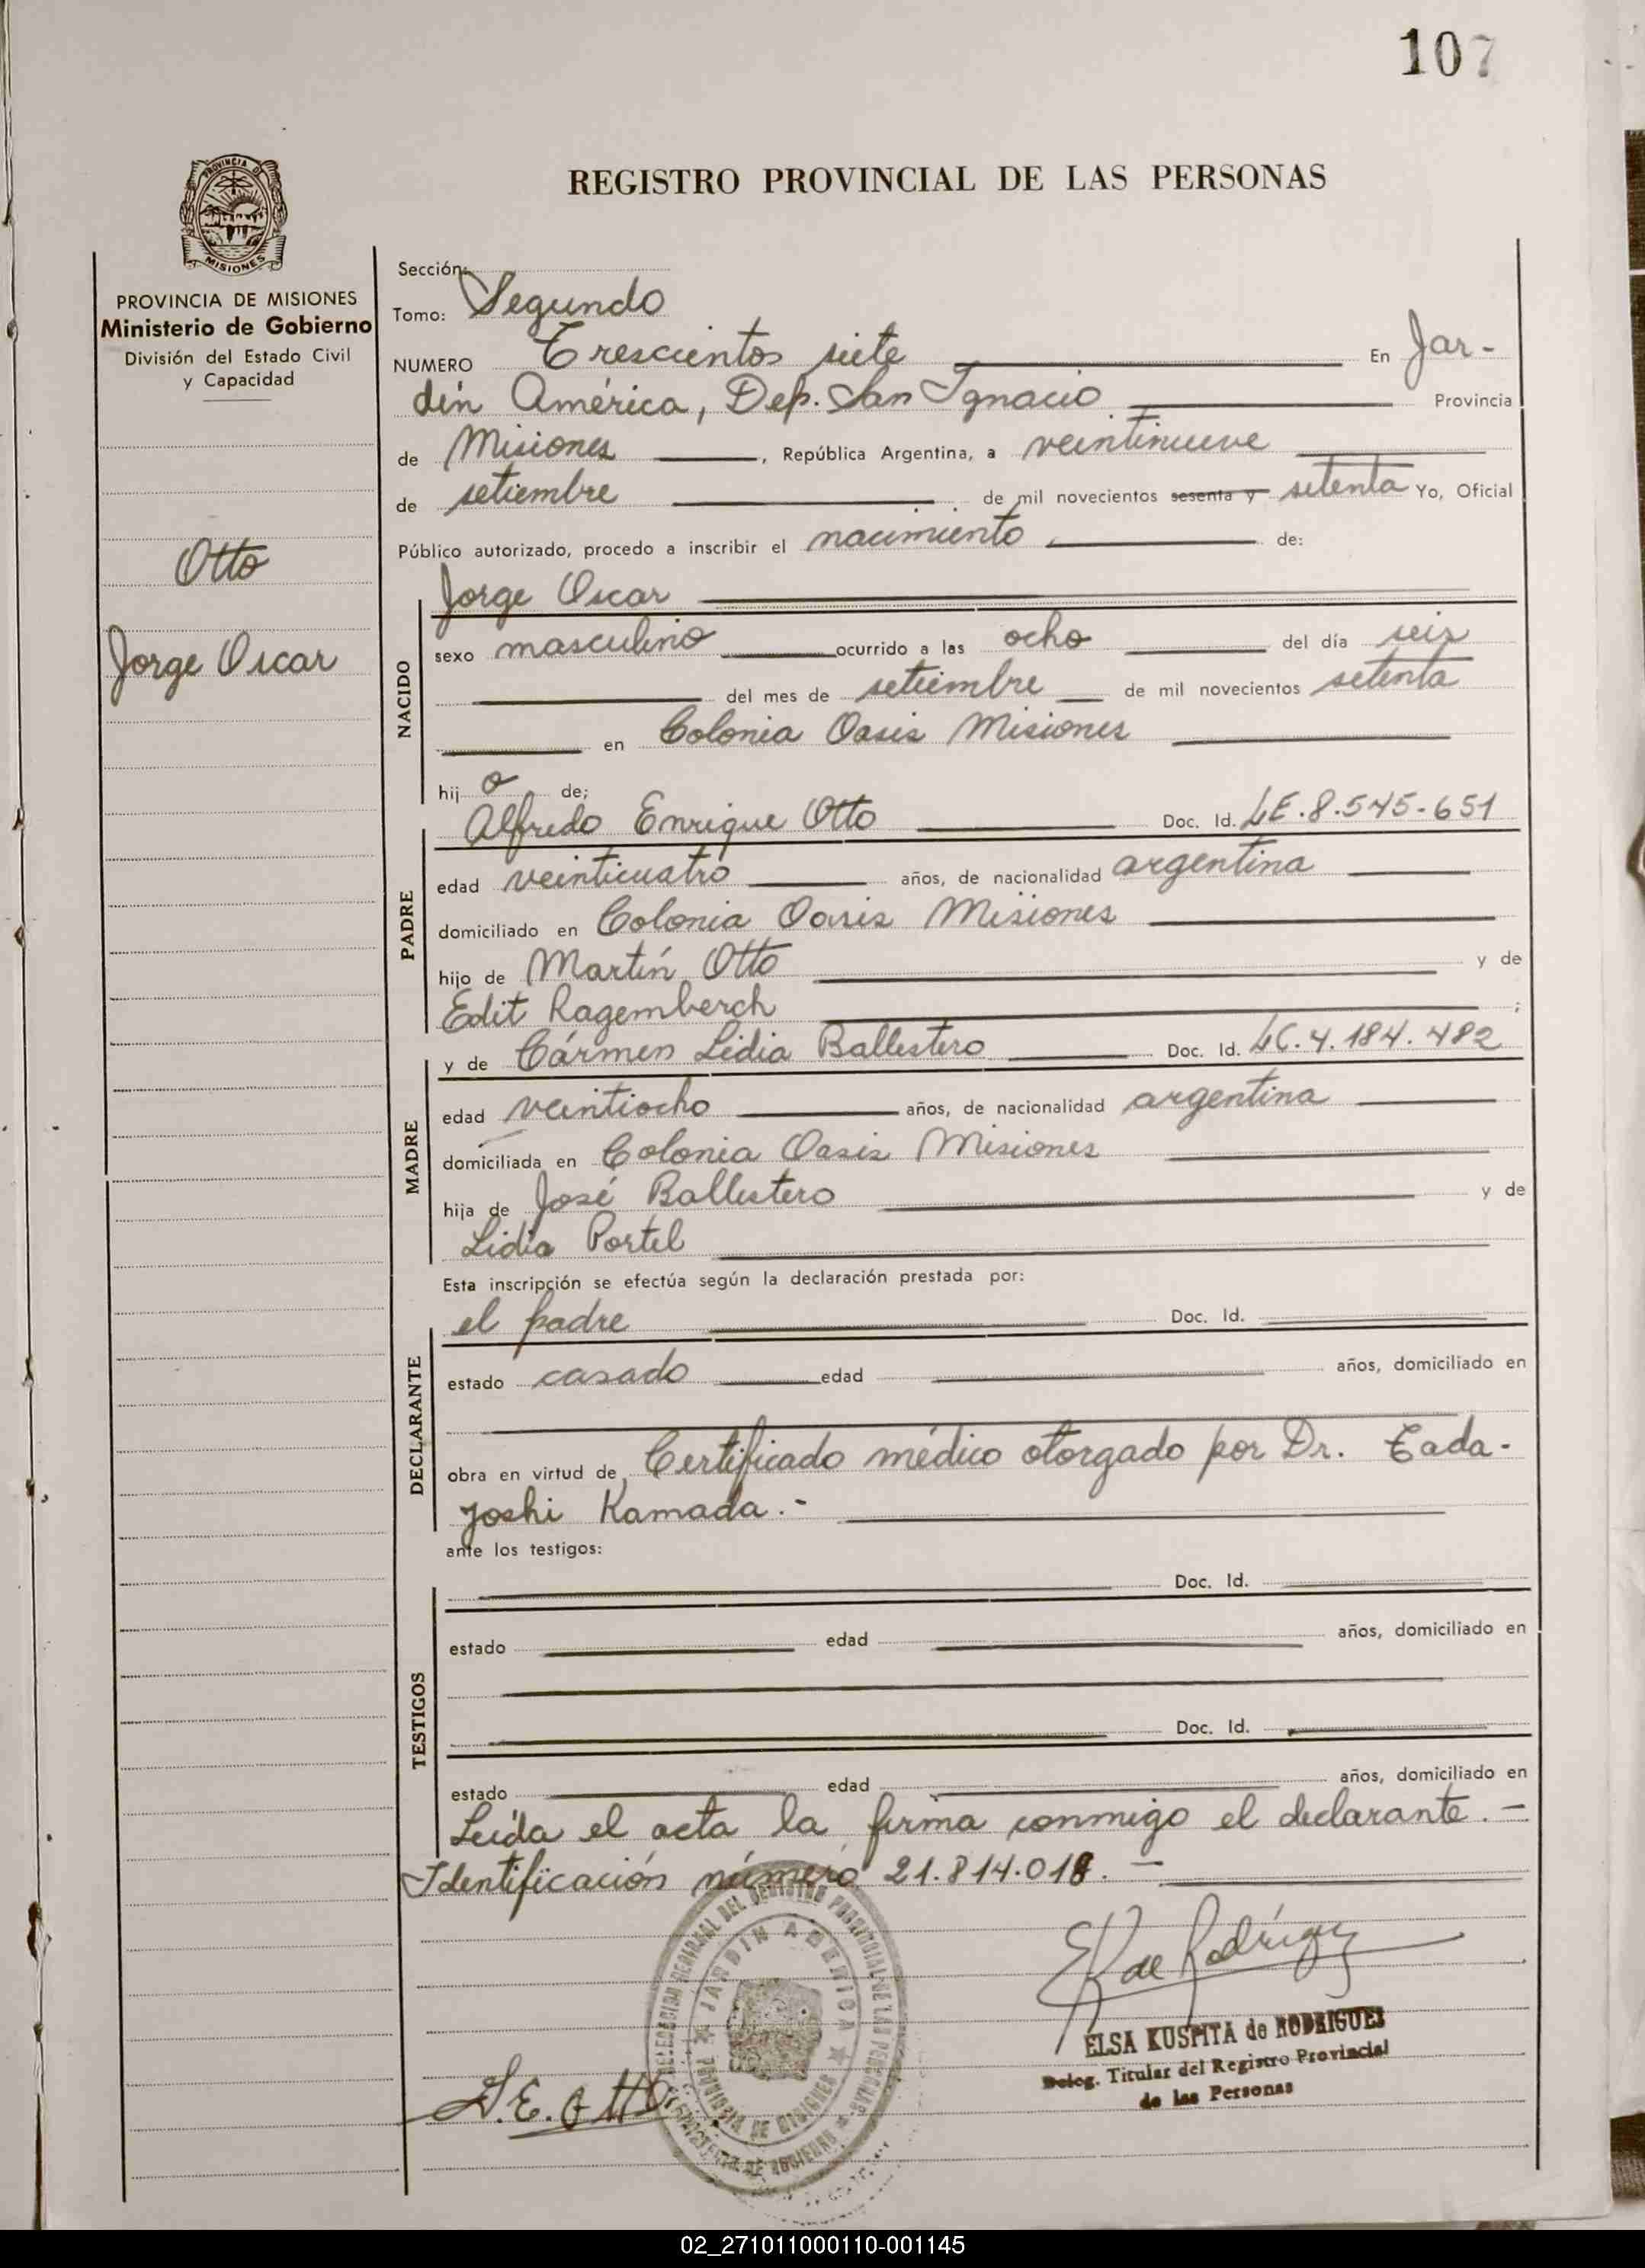 107
REGISTRO PROVINCIAL DE LAS PERSONAS
PROVINCIA DE MISIONES
PROVINCIA DE MISIONES
Ministerio de Gobierno
División del Estado Civil
y Capacidad
Otto
Jorge Oscar
Sección:
Tomo: Segundo
NUMERO Trescientos siete En Jar-
dín América, Dep. San Ignacio Provincia
de Misiones, República Argentina, a veintinueve
de setiembre de mil novecientos sesenta y setenta Yo, Oficial
Público autorizado, procedo a inscribir el nacimiento de:
Jorge Oscar
NACIDO
sexo masculino ocurrido a las ocho del día seis
del mes de setiembre de mil novecientos setenta
en Colonia Oasis Misiones
hij o de;
Alfredo Enrique Otto Doc. Id. LE.8.545-651
PADRE
edad veinticuatro años, de nacionalidad argentina
domiciliado en Colonia Oasis Misiones
hijo de Martín Otto y de
Edit Ragemberch ;
y de Cármen Lidia Ballestero Doc. Id. LC.4.184.482
MADRE
edad veintiocho años, de nacionalidad argentina
domiciliada en Colonia Oasis Misiones
hija de José Ballestero y de
Lidia Portel
Esta inscripción se efectúa según la declaración prestada por:
el padre Doc. Id.
DECLARANTE
estado casado edad años, domiciliado en
obra en virtud de, Certificado médico otorgado por Dr. Tada-
yoshi Kamada.-
ante los testigos:
Doc. Id.
TESTIGOS
estado edad años, domiciliado en
Doc. Id.
estado edad años, domiciliado en
Leída el acta la firma conmigo el declarante.-
Identificación número 21.814.018.-
JARDIN AMERICA
PROVINCIA DE MISIONES
E K de Rodríguez
ELSA KUSPITA de RODRIGUEZ
Deleg. Titular del Registro Provincial
de las Personas
A.E. Otto
02_271011000110-001145